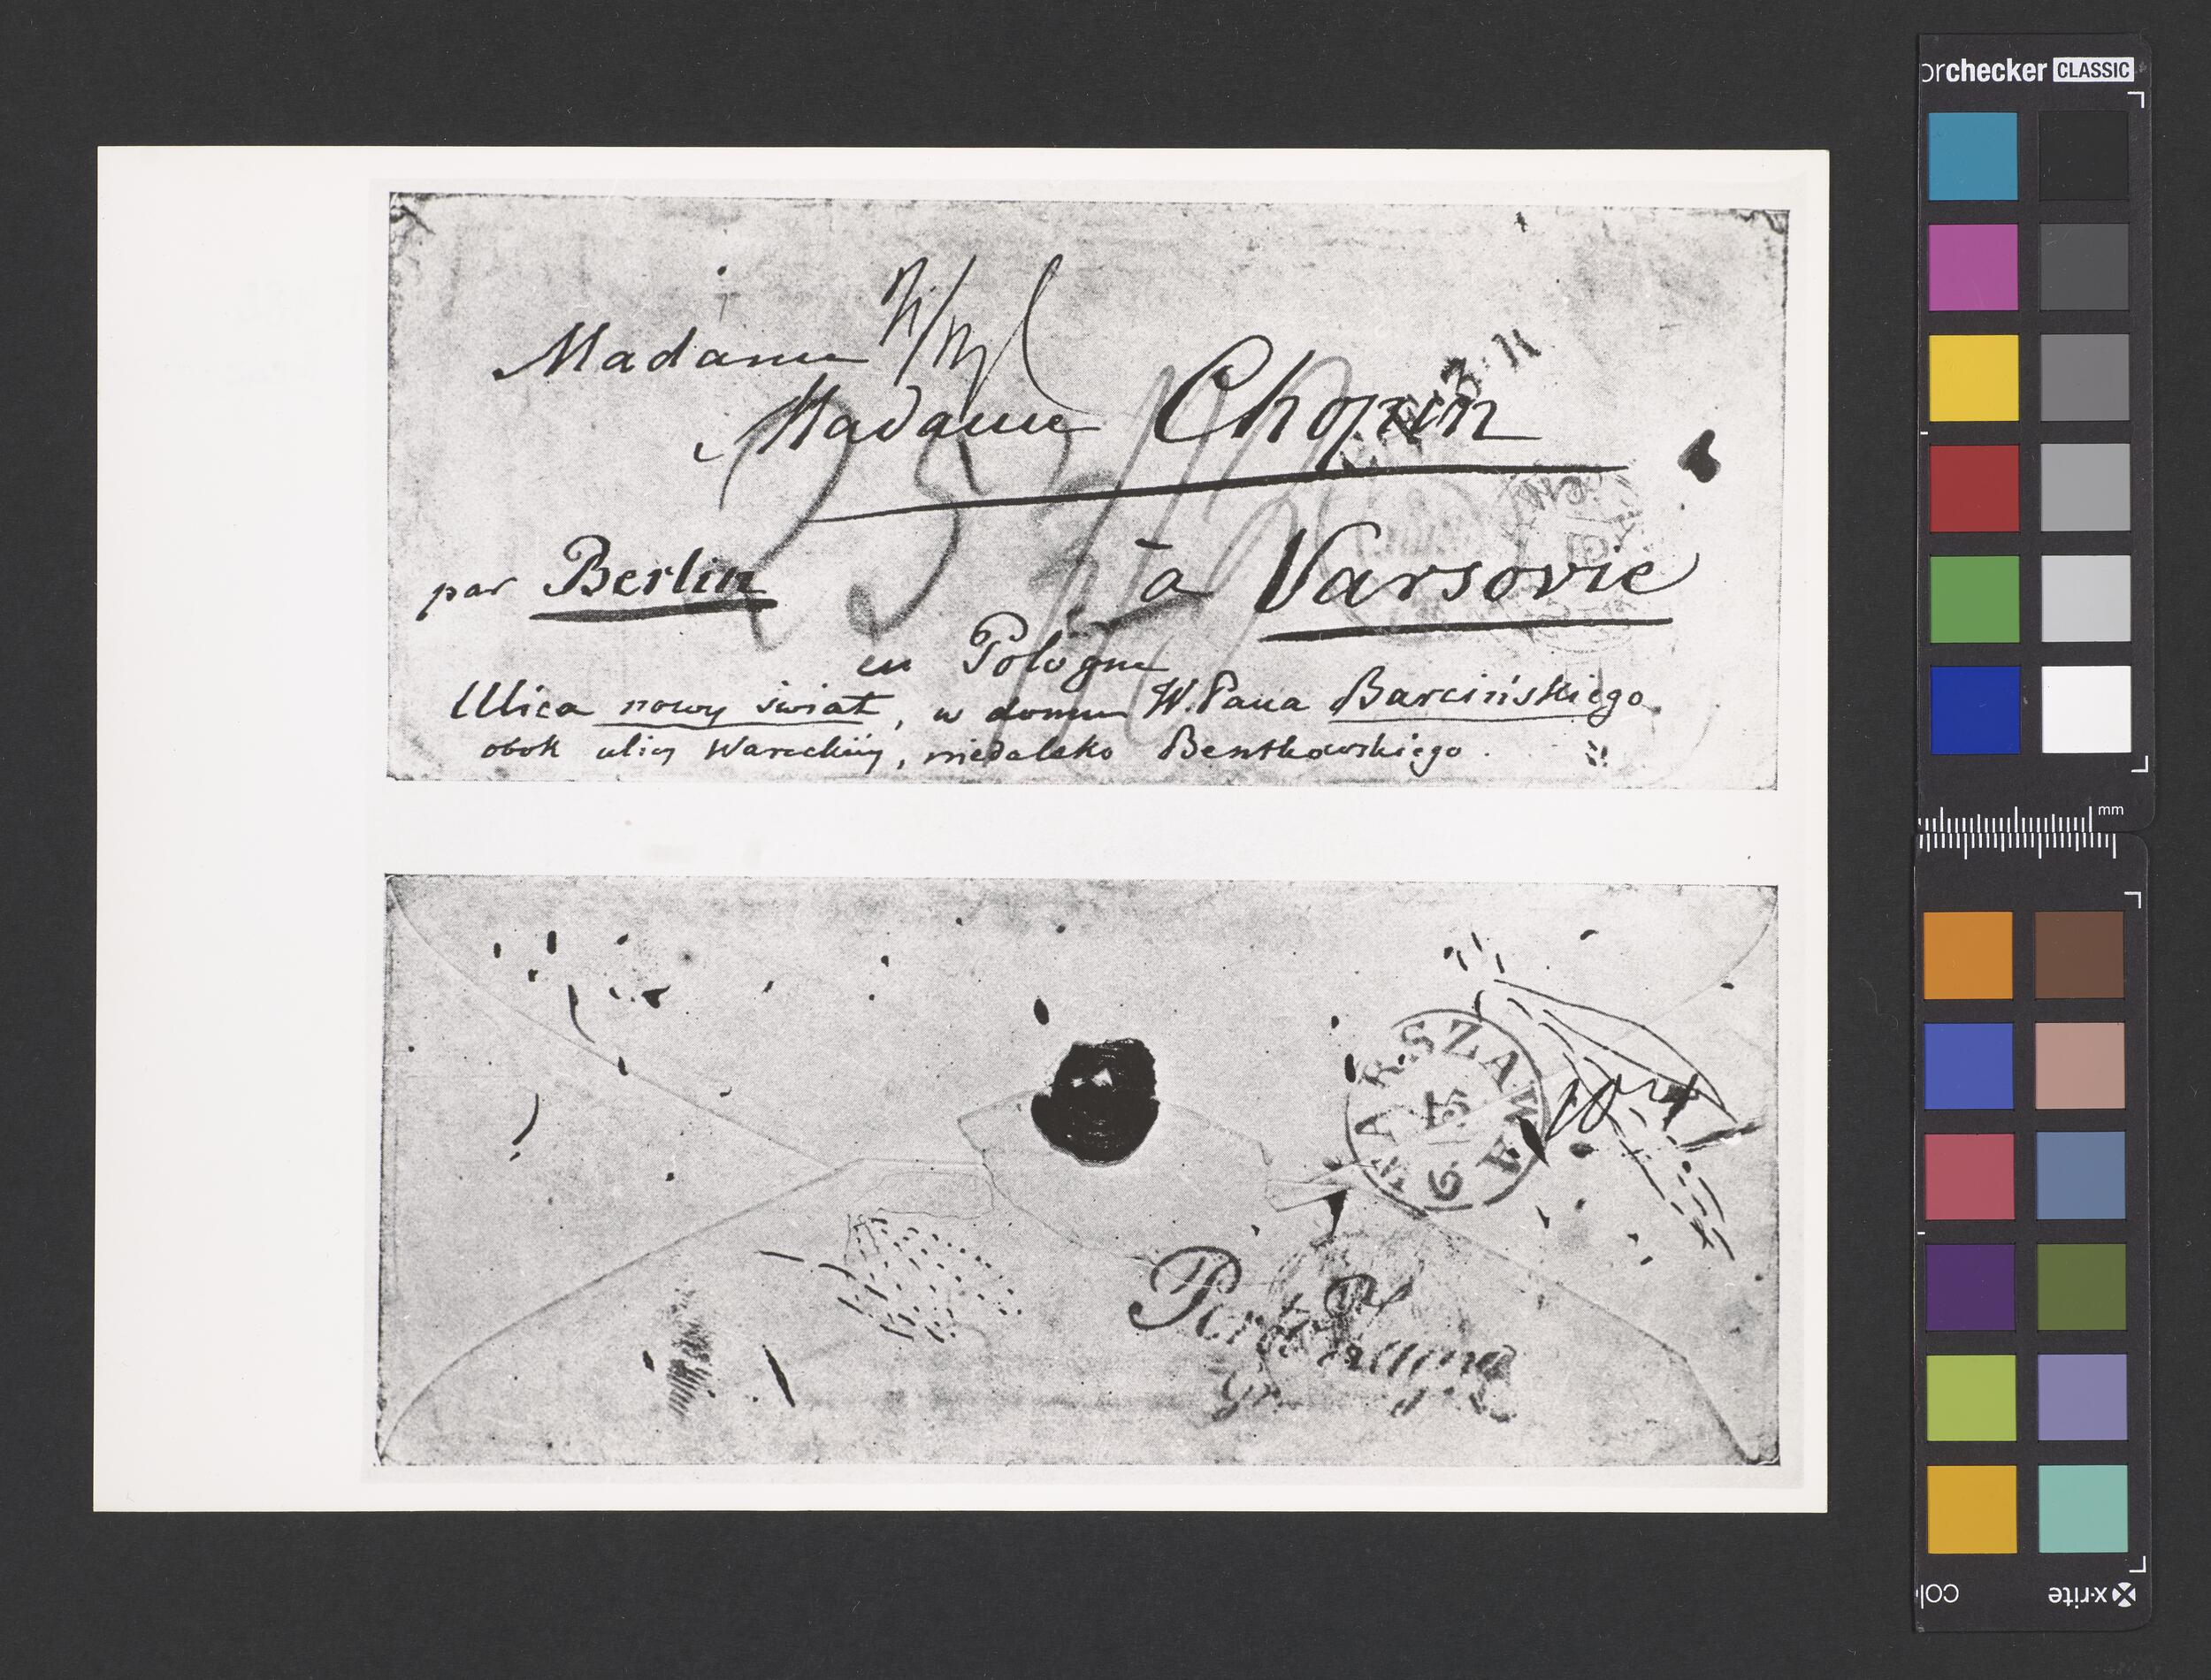 Madame
Madame Chopin
par Berlin
à Varsovie
en Pologne
Ulica nowy świat, w domu W. Pana Barcińskiego
obok ulicy Wareckiéy, niedaleko Bentkowskiego.
WARSZAWA
15
6
Porto
orchecker CLASSIC
mm
x-rite
col